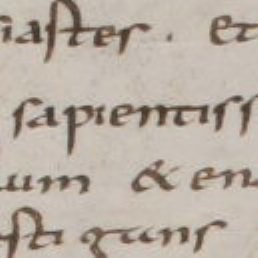 iastes. Et
sapientiss
um & en
sti gans